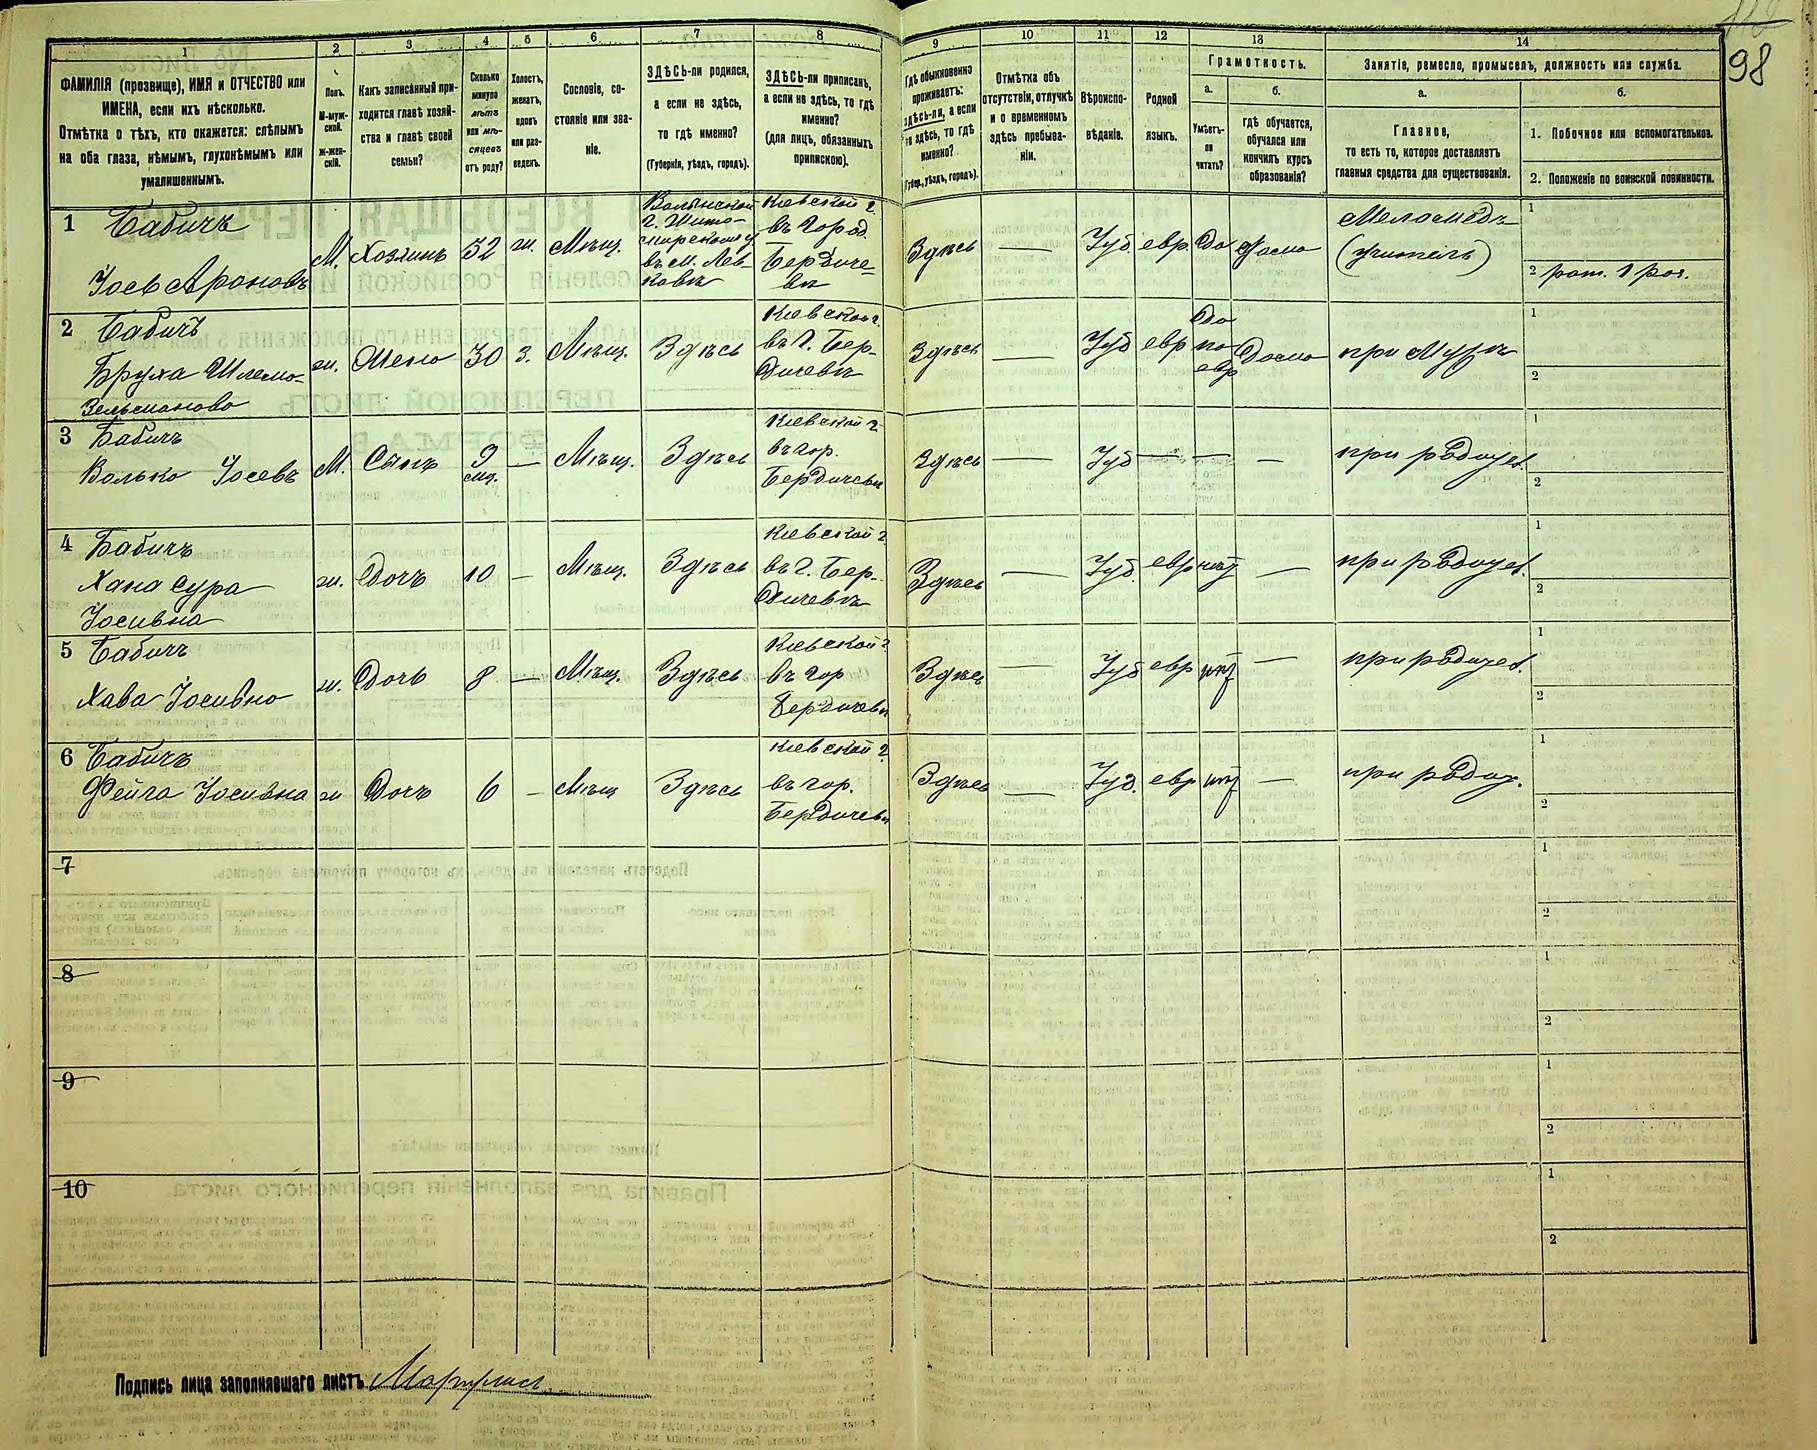 98
1 2 3 4 5 6 7 8 9 10 11 12 13 14
ФАМИЛІЯ (прозвище), ИМЯ и ОТЧЕСТВО или
ИМЕНА, если ихъ нѣсколько.
Отмѣтка о тѣхъ, кто окажется: слѣпымъ
на оба глаза, нѣмымъ, глухонѣмымъ или
умалишеннымъ.
Полъ.
М-муж-
ской.
Ж-жен-
скій.
Какъ записанный при-
ходится главѣ хозяй-
ства и главѣ своей
семьи?
Сколько
минуло
лѣтъ
или мѣ-
сяцевъ
отъ роду?
Холостъ,
женатъ,
вдовъ
или раз-
веденъ.
Сословіе, со-
стояніе или зва-
ніе.
ЗДѢСЬ-ли родился,
а если не здѣсь,
то гдѣ именно?
(Губернія, уѣздъ, городъ).
ЗДѢСЬ-ли приписанъ,
а если не здѣсь, то гдѣ
именно?
(для лицъ, обязанныхъ
припискою).
Гдѣ обыкновенно
проживаетъ:
здѣсь-ли, а если
не здѣсь, то гдѣ
именно?
(Губер., уѣздъ, городъ).
Отмѣтка объ
отсутствіи, отлучкѣ
и о временномъ
здѣсь пребыва-
ніи.
Вѣроиспо-
вѣданіе.
Родной
языкъ.
Грамотность.
а.
Умѣетъ-
ли
читать?
б.
гдѣ обучается,
обучался или
кончилъ курсъ
образованія?
Занятіе, ремесло, промыселъ, должность или служба.
а.
Главное,
то есть то, которое доставляетъ
главныя средства для существованія.
б.
1. Побочное или вспомогательное.
2. Положеніе по воинской повинности.
1 Бабичъ
Іось Ароновъ
М. Хозяинъ 32 ж. Мѣщ.
Волынской
г. Жито-
мирскаго у.
въ м. Лев-
ковѣ
Кіевской г.
въ город.
Бердиче-
вѣ
Здѣсь — Іуд евр. да дома
Меламедъ
(учитель)
1
2 рат. 1 раз.
2 Бабичъ
Бруха Шлемо-
Зельманова
ж. Жена 30 з. Мѣщ. Здѣсь
Кіевской г.
въ г. Бер-
дичевѣ
Здѣсь — Іуд евр
да
по
евр
Дома при мужѣ
1
2
3 Бабичъ
Волько Іосевъ
М. Сынъ 9
мѣс.
— Мѣщ. Здѣсь
Кіевской г.
въ гор.
Бердичевѣ
Здѣсь — Іуд — — — при родител.
1
2
4 Бабичъ
Хана Сура
Іосивна
ж. Дочь 10 — Мѣщ. Здѣсь
Кіевской г.
въ г. Бер-
дичевѣ
Здѣсь — Іуд. евр нѣт — при родител.
1
2
5 Бабичъ
Хава Іосивна
ж. Дочь 8 — Мѣщ. Здѣсь
Кіевской г.
въ гор
Бердичевѣ
Здѣсь — Іуд евр нѣт — при родител.
1
2
6 Бабичъ
Фейга Іосивна
ж Дочь 6 — Мѣщ Здѣсь
Кіевской г.
въ гор.
Бердичевѣ
Здѣсь — Іуд. евр нѣт — при родит.
1
2
7
1
2
8
1
2
9
1
2
10
1
2
Подпись лица заполнявшаго листъ